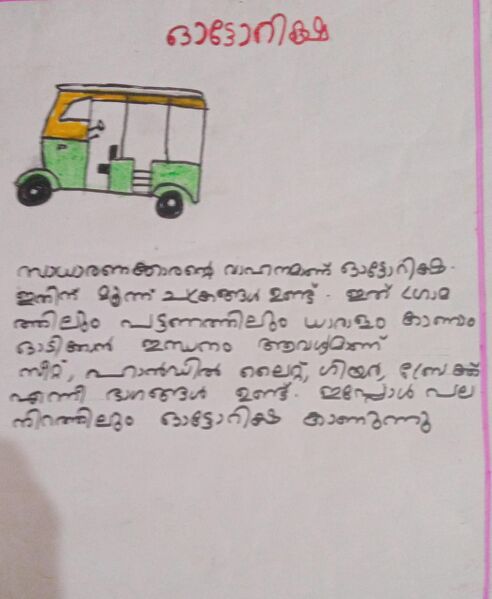 ഓട്ടോറിക്ഷ
സാധാരണക്കാരന്റെ വാഹനമാണ് ഓട്ടോറിക്ഷ.
ഇതിന് മൂന്ന് ചക്രങ്ങൾ ഉണ്ട്. ഇത് ഗ്രാമ
ത്തിലും പട്ടണത്തിലും ധാരാളം കാണാം
ഓടിക്കാൻ ഇന്ധനം ആവശ്യമാണ്
സീറ്റ്, ഹാൻഡിൽ ലൈറ്റ്, ഗിയർ, ബ്രേക്ക്
എന്നീ ഭാഗങ്ങൾ ഉണ്ട്. ഇപ്പോൾ പല
നിറത്തിലും ഓട്ടോറിക്ഷ കാണുന്നു